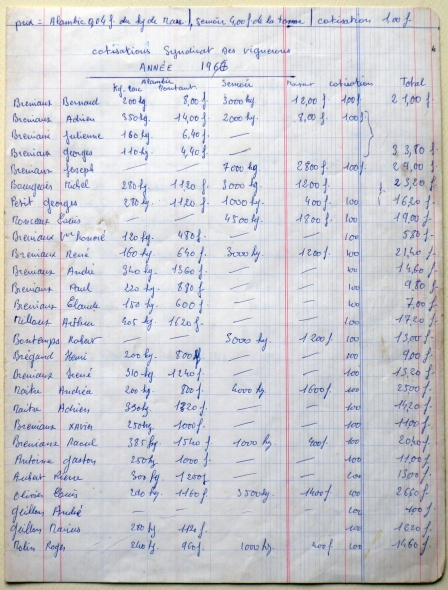 prix = Alambic 0,04 f. du kg de marc, Semoir 4,00 f de la tonne cotisation 1,00 f
cotisations Syndicat des vignerons
ANNÉE 1966
Alambic Semoir
Kg. marc Montant cotisation Total
Breniaux Bernard 200 kg 8,00 f. 3000 kg 12,00 f 1,00 f. 21,00 f.
Breniaux Adrien 350 kg. 14,00 f. 2000 kg. 8,00 f. 1,00 f.
Breniaux Julienne 160 kg. 6,40 f. —
Breniaux Georges 110 kg. 4,40 f. — 33,80 f.
Breniaux Joseph — — 7000 kg 28,00 f. 1,00 f. 29,00 f.
Bourgeois Michel 280 kg. 11,20 f. 3000 kg. 12,00 f. 23,20 f
Petit Georges 280 kg. 11,20 f. 1000 kg. 4,00 f. 1,00 16,20 f.
Louis — — 4500 kg. 18,00 f. 1,00 19,00 f.
Breniaux Vve Honoré 120 kg. 4,80 f. — — 1,00 5,80 f.
Breniaux René 160 kg. 6,40 f. 3000 kg. 12,00 f. 1,00
Breniaux André 340 kg. 13,60 f. — — 1,00 14,60 f.
Breniaux Paul 220 kg. 8,80 f. — — 1,00 9,80 f.
Breniaux Claude 150 kg 6,00 f. — — 1,00 7,00 f.
Arthur 405 kg. 16,20 f. — — 1,00 17,20 f.
Bontemps Robert — — 3000 kg. 12,00 f 1,00 13,00 f.
Brégand Henri 200 kg. 8,00 f — — 1,00 9,00 f.
Breniaux René 310 kg. 12,40 f. — — 1,00
Maitre Andréa 200 kg. 8,00 f. 4000 kg. 16,00 f. 1,00 25,00 f.
Maitre Adrien — — 1,00 14,20 f.
Breniaux Xavier 250 kg. 10,00 f. — — 1,00 11,00 f.
Breniaux Raoul 385 kg. 15,40 f. 1000 kg 4,00 f. 1,00 20,40 f.
Antoine Gaston 250 kg 10,00 f. — — 1,00 11,00 f.
Aubert Pierre 300 kg 12,00 f — — 1,00 13,00 f.
Olivier Louis 11,60 f 3500 kg. 14,00 f 1,00 26,60 f.
Guillon André — — — — 1,00 1,00 f
Guillon Marius 280 kg 11,20 f. — — 1,00
Molin Roger 240 kg 9,60 f. 1000 kg. 4,00 f 1,00 14,60 f.